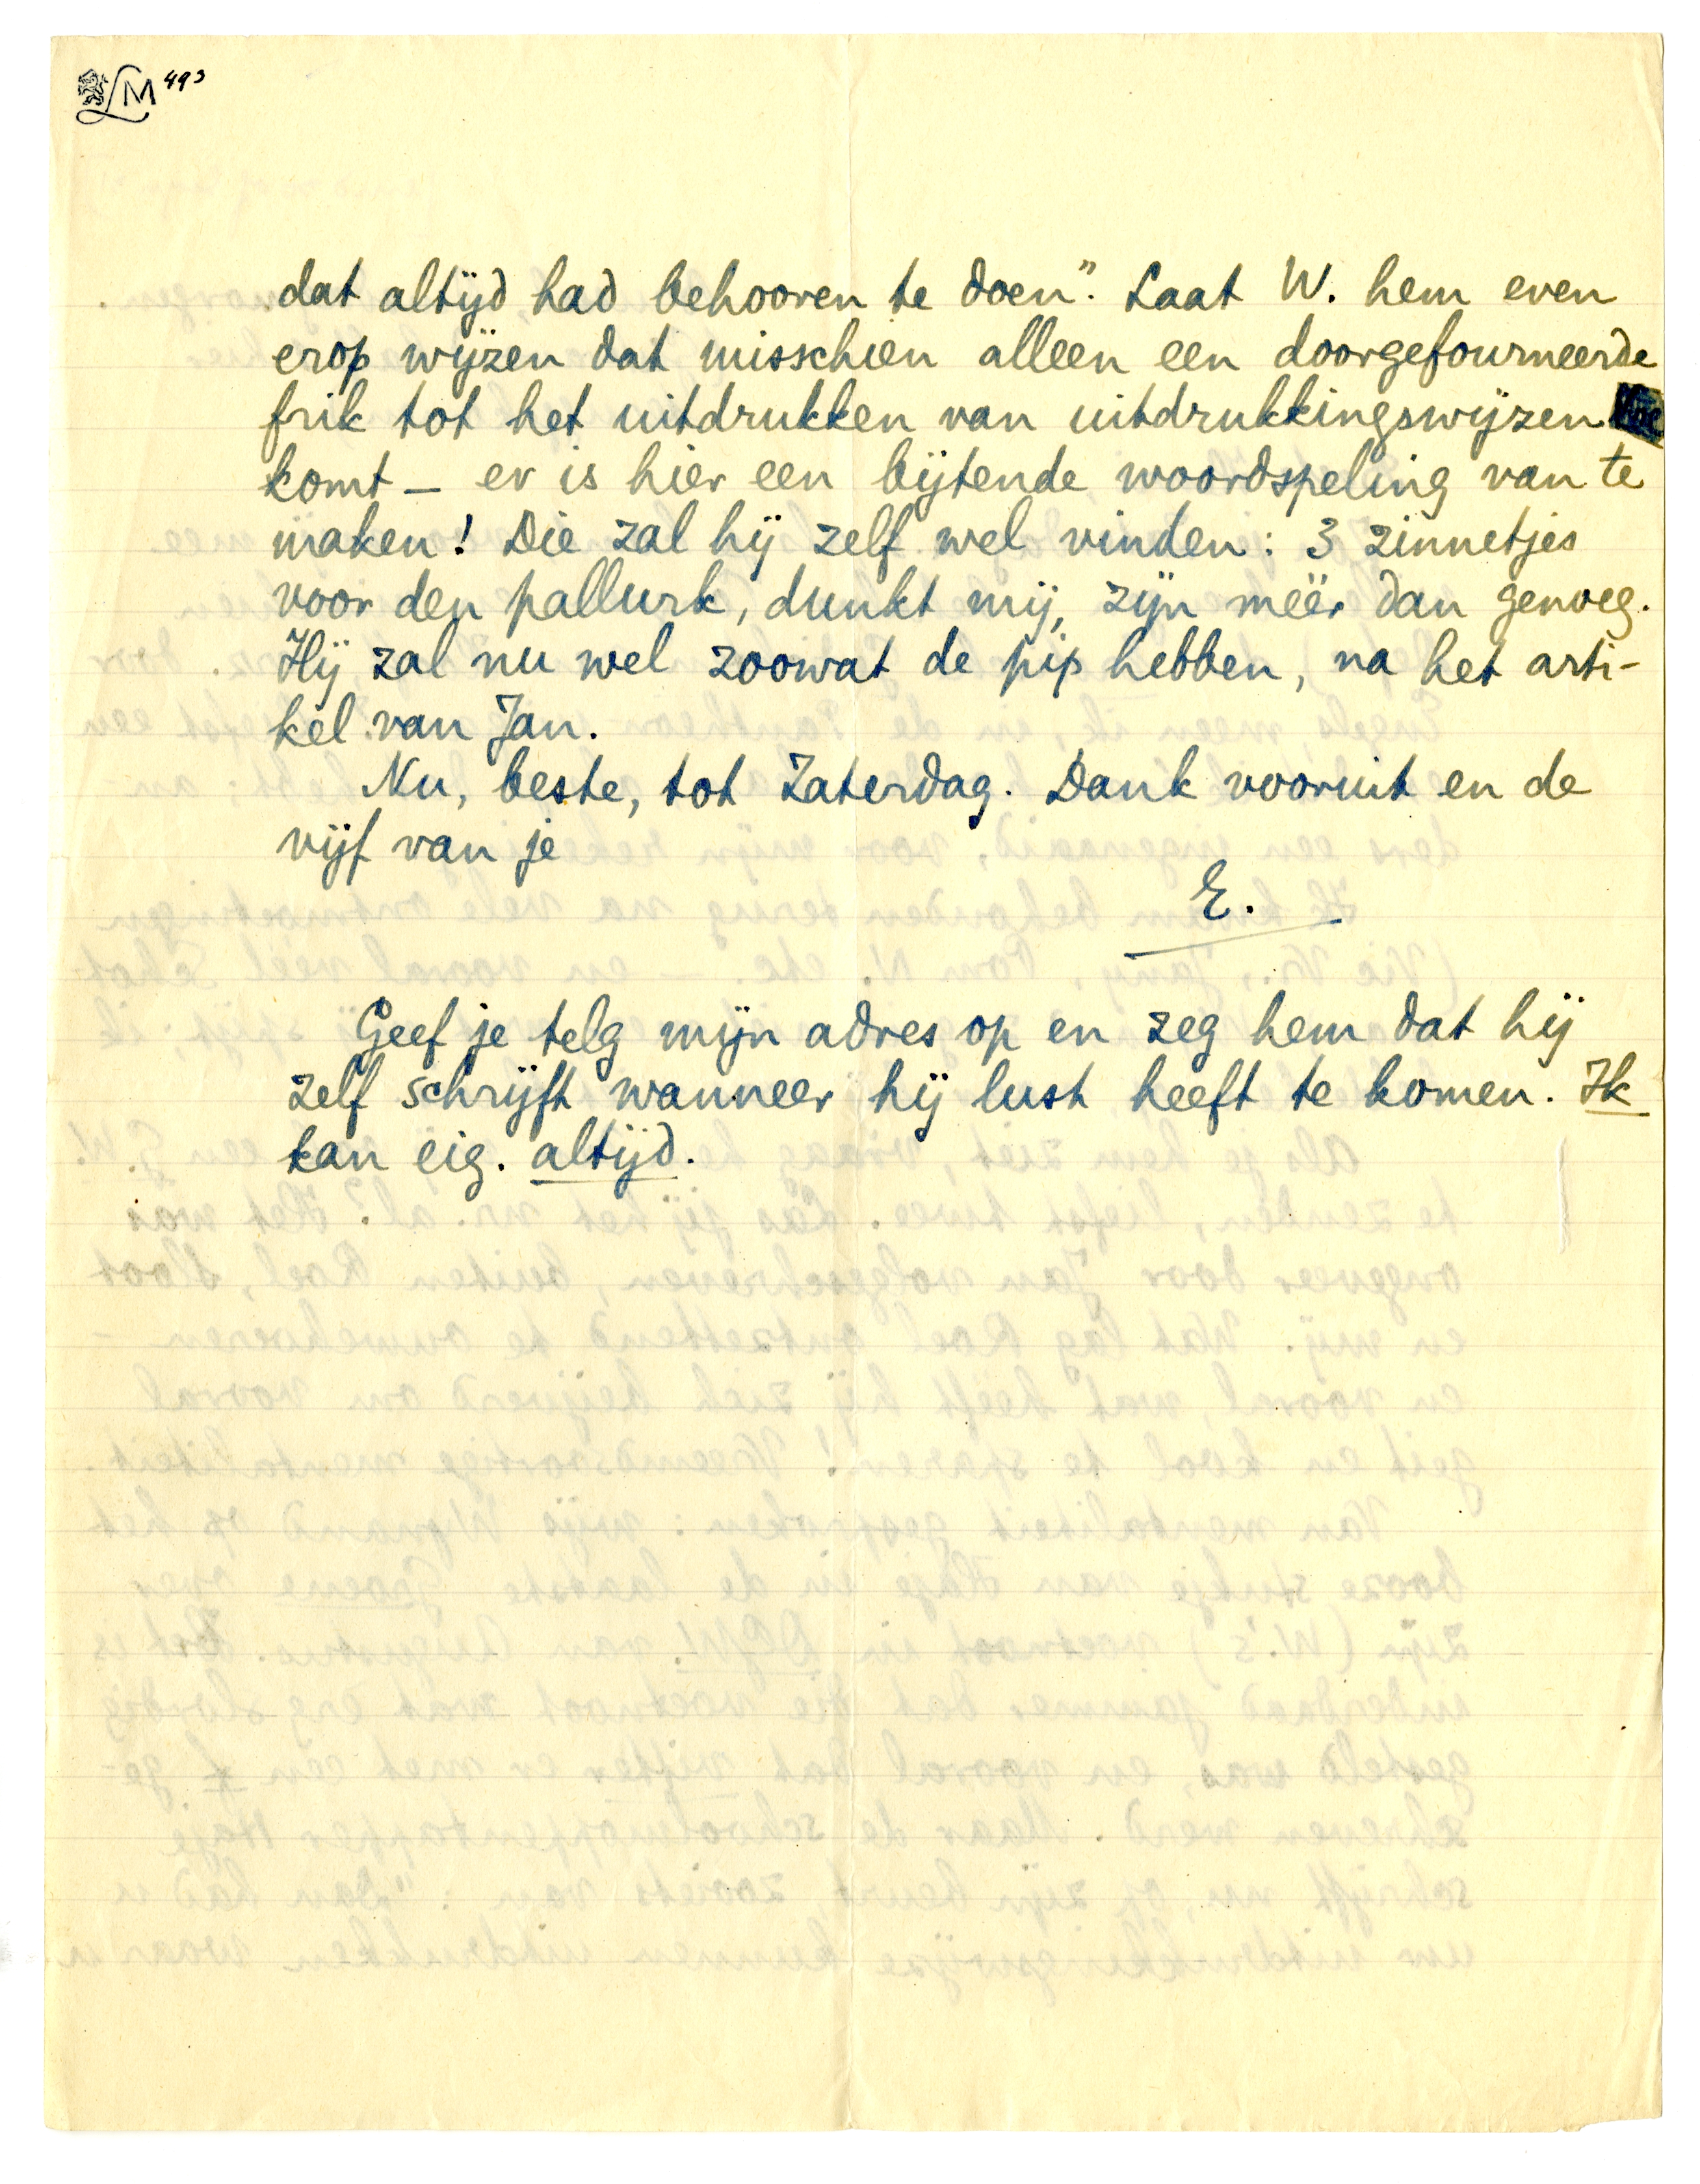 LM 493
dat altijd had behooren te doen". Laat W. hem even
erop wijzen dat misschien alleen een doorgefourneerde
frik tot het uitdrukken van uitdrukkingswijzen
komt — er is hier een bijtende woordspeling van te
maken! Die zal hij zelf wel vinden: 3 zinnetjes
voor den pallurk, dunkt mij, zijn méér dan genoeg.
Hij zal nu wel zoowat de pip hebben, na het arti-
kel van Jan.
Nu, beste, tot Zaterdag. Dank vooruit en de
vijf van je
E.
Geef je telg mijn adres op en zeg hem dat hij
zelf schrijft wanneer hij lust heeft te komen. Ik
kan eig. altijd.